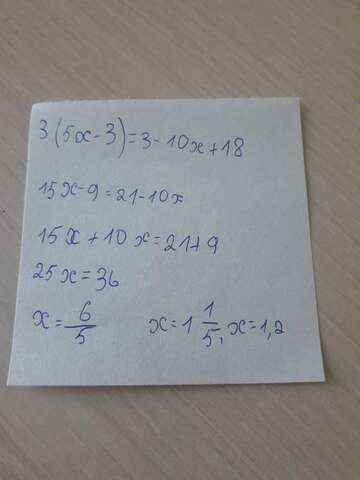 3(5x-3)=3-10x+18
15x-9=21-10x
15x+10x=21+9
25x=36
x=6/5 x=1 1/5, x=1,2